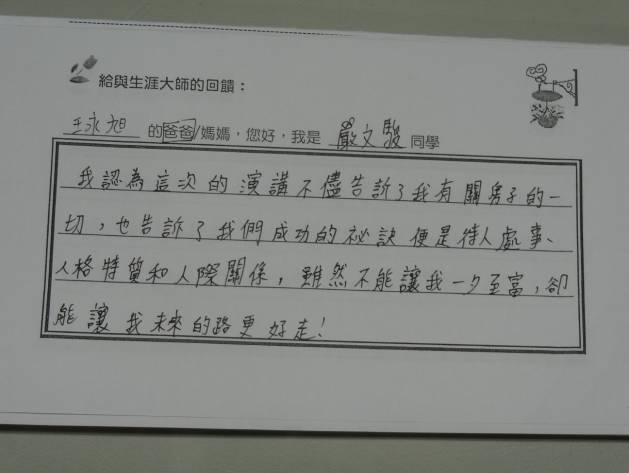 給與生涯大師的回饋：
王永旭 的爸爸/媽媽，您好，我是 嚴文駿 同學
我認為這次的演講不儘告訴了我有關房子的一
切，也告訴了我們成功的祕訣便是待人處事、
人格特質和人際關係，雖然不能讓我一夕至富，卻
能讓我未來的路更好走！